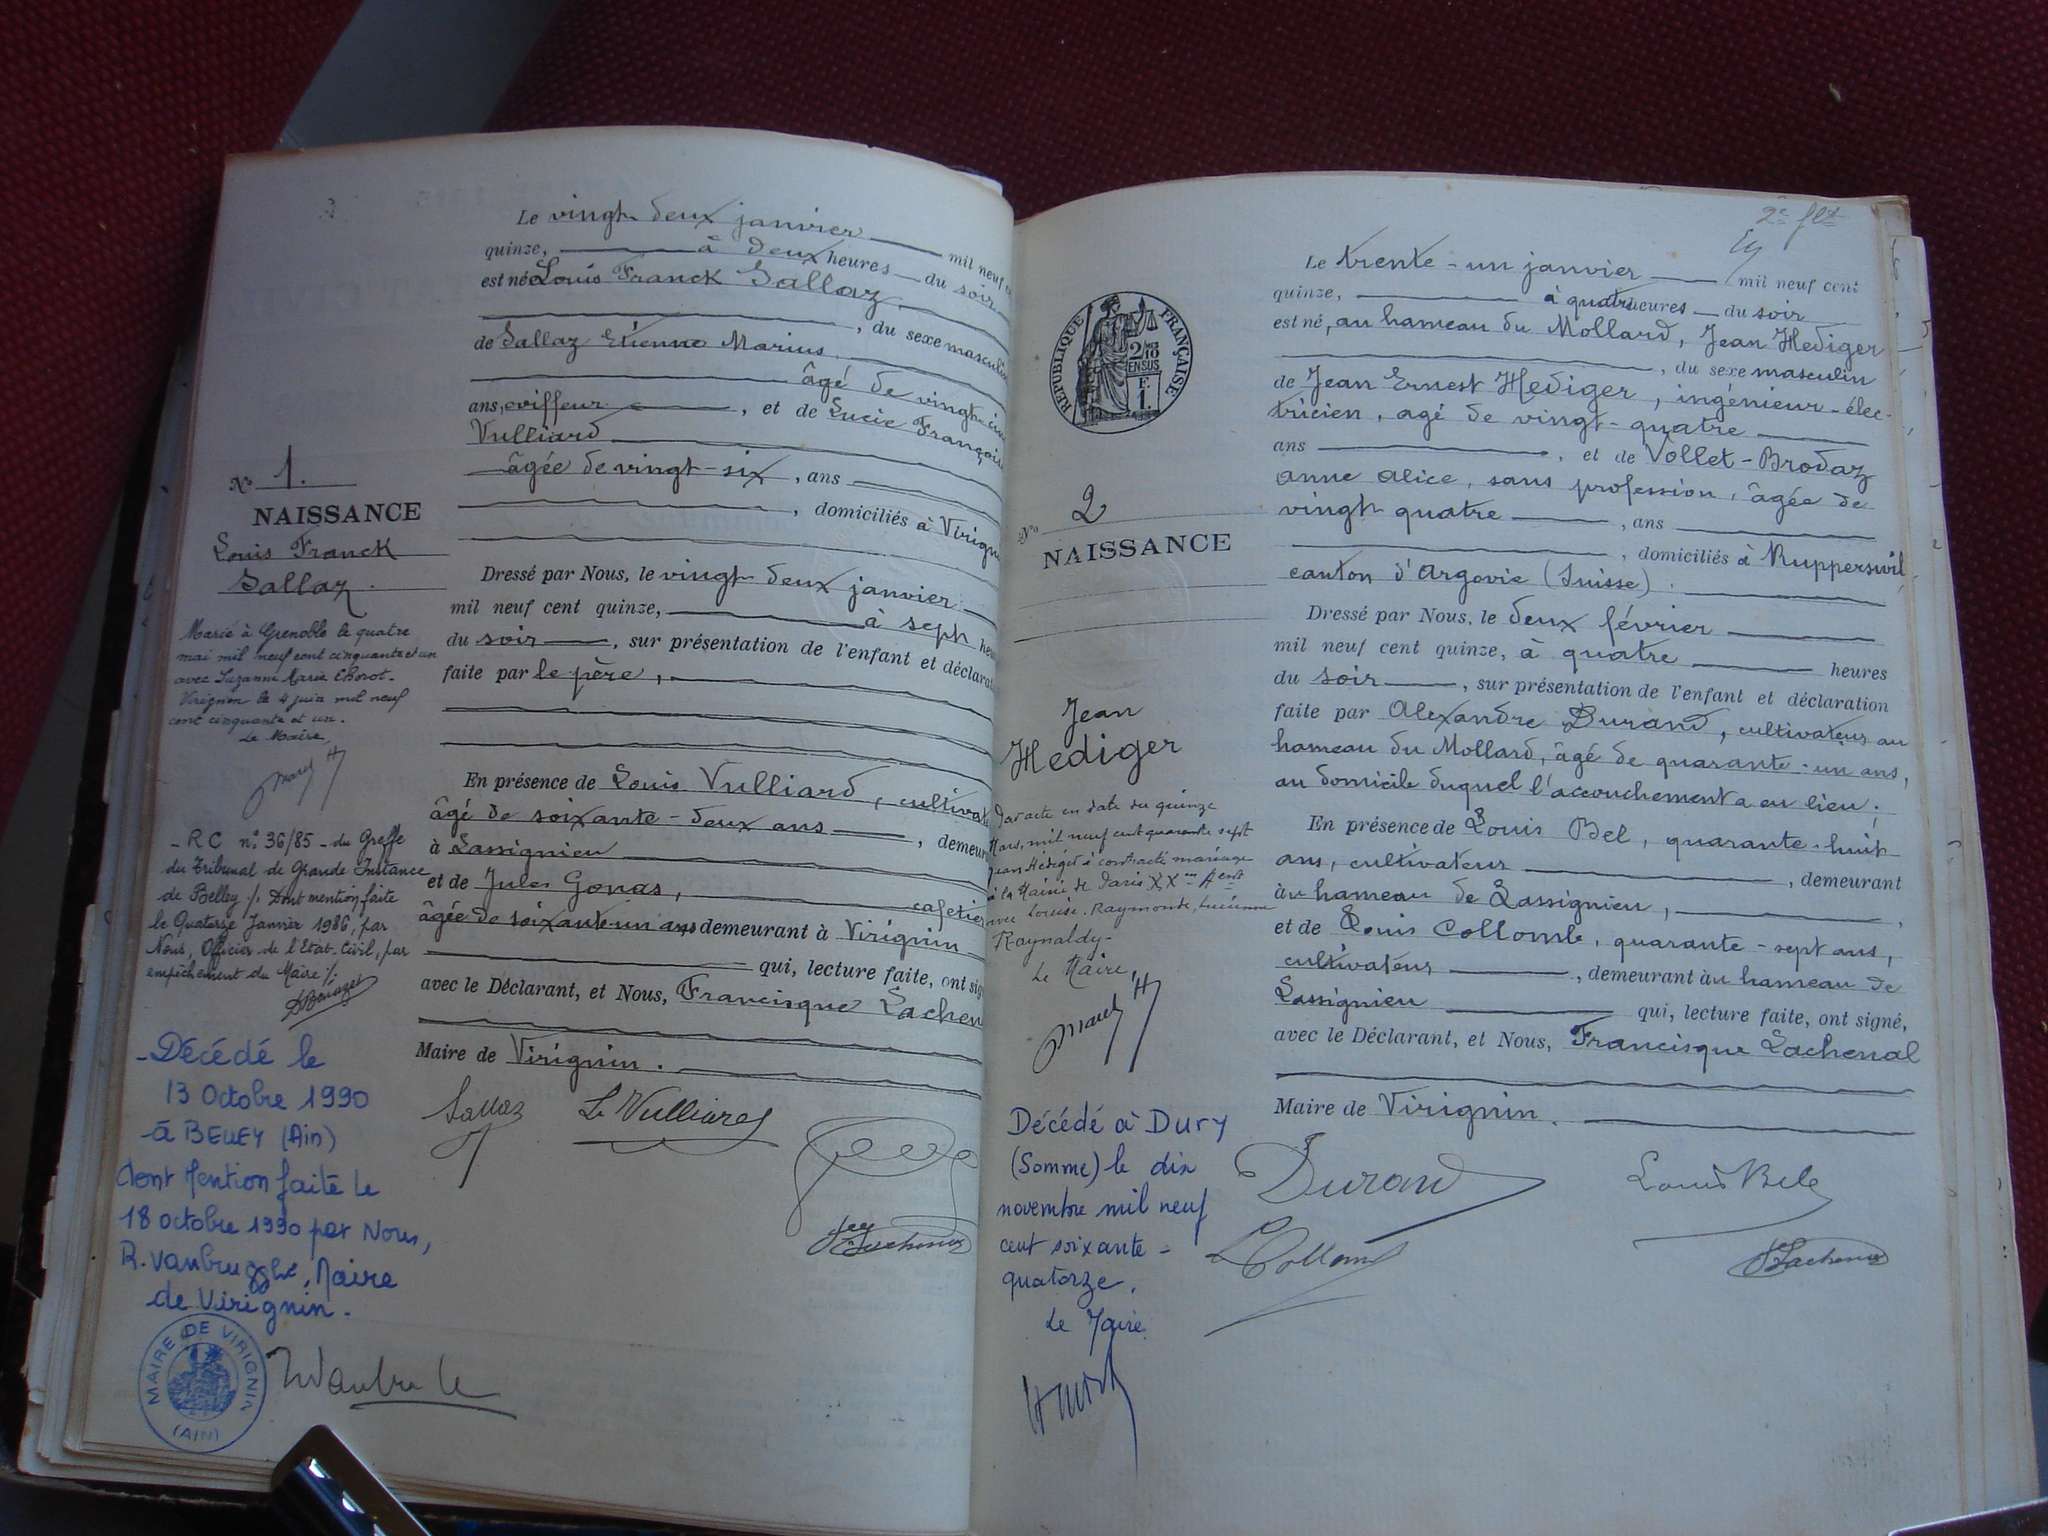 Le vingt deux janvier mil neuf
quinze, à deux heures du soir
est né Louis Franck Sallaz
, du sexe masculin
de Sallaz Etienne Marius
âgé de vingt
ans, coiffeur , et de Lucie
Vulliard
âgée de vingt-six , ans
, domiciliés à
Dressé par Nous, le vingt deux janvier
mil neuf cent quinze, à sept
du soir , sur présentation de l'enfant et
faite par le père,
En présence de Louis Vulliard,
âgé de soixante-deux ans ,
à Lassignieu
et de Jules Gonas, cafetier
âgée de soixante un ans demeurant à Virignin
qui, lecture faite, ont
avec le Déclarant, et Nous, Francisque
Maire de Virignin.
Sallaz L. Vulliard
No 1.
NAISSANCE
Louis Franck
Sallaz.
Marié à Grenoble le quatre
mai mil neuf cent cinquante et un
avec Suzanne Marie
Virignin le 4 juin mil neuf
cent cinquante et un.
Le Maire,
- RC n° 36/85 - du Greffe
du Tribunal de Grande Instance
de Belley ./. Dont mention faite
le Quatorze Janvier 1986, par
Nous, Officier de l'Etat-Civil, par
empêchement du Maire ./.
- Décédé le
13 Octobre 1990
à BELLEY (Ain)
dont Mention faite le
18 octobre 1990 par Nous,
R. Vanbrugghe, Maire
de Virignin.
MAIRE DE VIRIGNIN
(AIN)
2e flt
RÉPUBLIQUE FRANÇAISE
2/10
EN SUS
F.
1.
No 2
NAISSANCE
Jean
Hediger
Par acte en date du quinze
Mars, mil neuf cent quarante sept
Jean Hediger a contracté mariage
à la Mairie de Paris XX me Arrt
avec Louise, Raymonde, Lucienne
Raynaldy -
Le Maire,
Décédé à Dury
(Somme) le dix
novembre mil neuf
cent soixante-
quatorze.
Le Maire
Le trente-un janvier mil neuf cent
quinze, à quatre heures du soir
est né, au hameau du Mollard, Jean Hediger
, du sexe masculin
de Jean Ernest Hediger, ingénieur-élec-
tricien, agé de vingt-quatre
ans , et de Vollet-Brodaz
anne alice, sans profession, âgée de
vingt quatre , ans
, domiciliés à Rupperswil,
canton d'Argovie (Suisse).
Dressé par Nous, le deux février
mil neuf cent quinze, à quatre heures
du soir , sur présentation de l'enfant et déclaration
faite par Alexandre Durand, cultivateur au
hameau du Mollard, âgé de quarante-un ans,
au domicile duquel l'accouchement a eu lieu;
En présence de Louis Bel, quarante-huit
ans, cultivateur , demeurant
au hameau de Lassignieu,
et de Louis Collomb, quarante-sept ans,
cultivateur , demeurant au hameau de
Lassignieu qui, lecture faite, ont signé,
avec le Déclarant, et Nous, Francisque Lachenal
Maire de Virignin.
Durand Louis Bel
L Collomb Lachenal